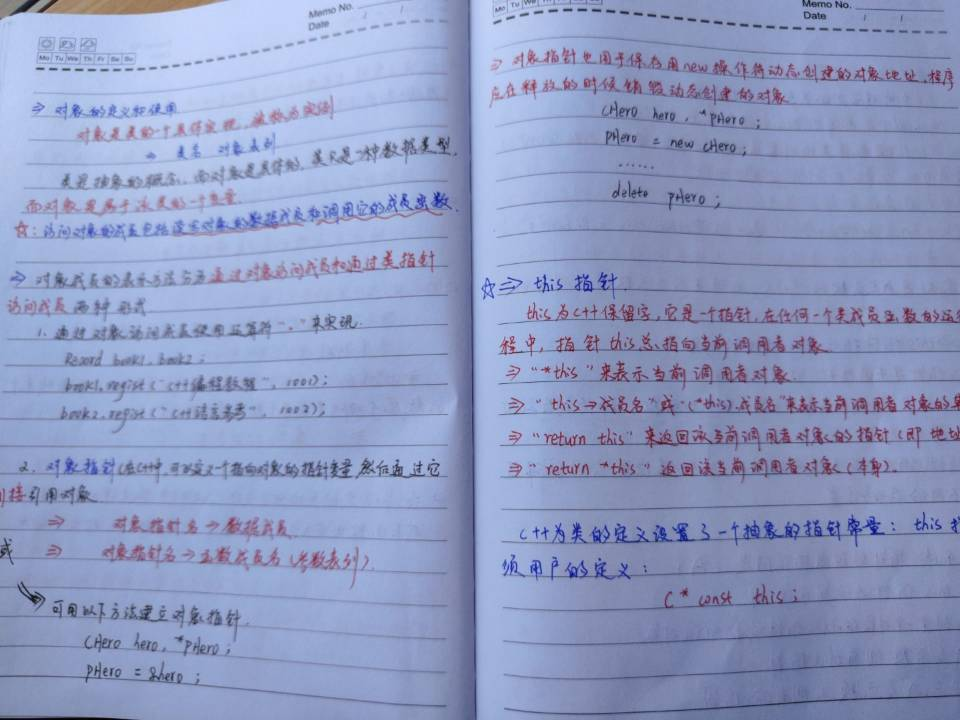 Memo No.
Date / /
Mo Tu We Th Fr Sa Su
⇒ 对象的定义和使用
对象是类的一个具体实现,被称为实例
⇒ 类名 对象表列
类是抽象的概念,而对象是具体的,类只是一种数据类型,
而对象是属于该类的一个变量.
☆:访问对象的成员包括读写对象的数据成员和调用它的成员函数.
⇒ 对象成员的表示方法分为通过对象访问成员和通过类指针
访问成员 两种形式
1. 通过对象访问成员使用运算符“.”来实现.
Record book1, book2;
book1.regist(“C++编程教程”, 1001);
book2.regist(“C++语言参考”, 1002);
2. 对象指针(在C++中,可以定义一个指向对象的指针变量,然后通过它
间接引用对象
⇒ 对象指针名→数据成员
或 ⇒ 对象指针名→函数成员名(参数表列)
可用以下方法建立对象指针.
CHero hero, *pHero;
pHero = &hero;
Memo No.
Date / /
Mo Tu We Th Fr Sa Su
⇒ 对象指针也用于保存用new操作符动态创建的对象地址,程序
应在释放的时候销毁动态创建的对象
CHero hero, *pHero;
pHero = new CHero;
......
delete pHero;
☆⇒ this 指针
this为C++保留字,它是一个指针,在任何一个类成员函数的运
程中,指针this总指向当前调用者对象
⇒ “*this”来表示当前调用者对象.
⇒ “this→成员名”或“(*this).成员名”来表示当前调用者对象的
⇒ “return this”来返回该当前调用者对象的指针(即地址
⇒ “return *this”返回该当前调用者对象(本身).
C++为类的定义设置了一个抽象的指针常量:this
须用户的定义:
C* const this;